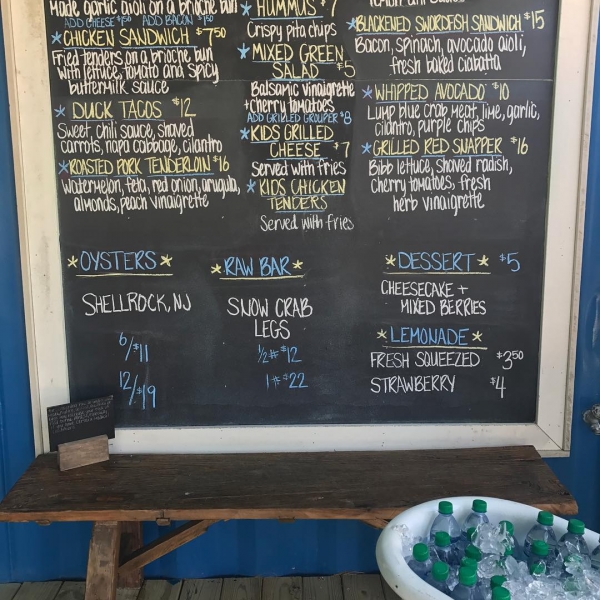 garlic aioli on a brioche bun
ADD CHEESE $1.50 ADD BACON $1.50
*CHICKEN SANDWICH $7.50
Fried tenders on a brioche bun
with lettuce, tomato and spicy
buttermilk sauce
*DUCK TACOS $12
Sweet chili sauce, shaved
carrots, napa cabbage, cilantro
*ROASTED PORK TENDERLOIN $16
Watermelon, feta, red onion, arugula,
almonds, peach vinaigrette
*HUMMUS $7
Crispy pita chips
*MIXED GREEN
SALAD $5
Balsamic vinaigrette
+cherry tomatoes
ADD GRILLED GROUPER $8
*KIDS GRILLED
CHEESE $7
Served with fries
*KIDS CHICKEN
TENDERS
Served with fries
*BLACKENED SWORDFISH SANDWICH $15
Bacon, spinach, avocado aioli,
fresh baked ciabatta
*WHIPPED AVOCADO $10
Lump blue crab meat, lime, garlic,
cilantro, purple chips
*GRILLED RED SNAPPER $16
Bibb lettuce, shaved radish,
cherry tomatoes, fresh
herb vinaigrette
*OYSTERS*
SHELLROCK, NJ
6/$11
12/$19
*RAW BAR*
SNOW CRAB
LEGS
1/2# $12
1# $22
*DESSERT* $5
CHEESECAKE +
MIXED BERRIES
*LEMONADE*
FRESH SQUEEZED $3.50
STRAWBERRY $4